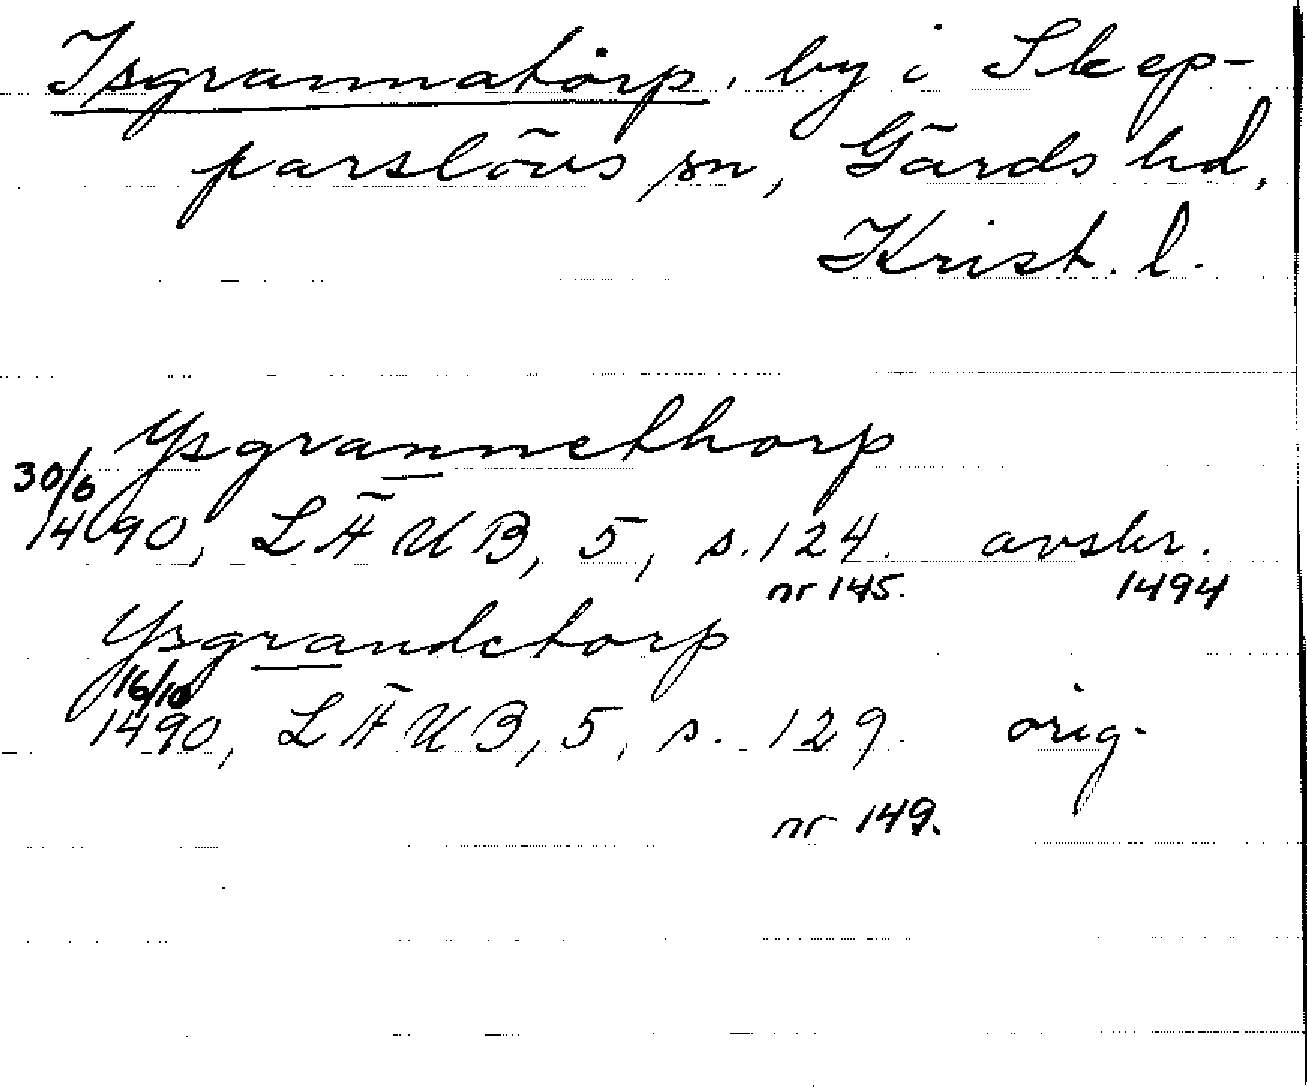 Isgrannatorp, by i Skep-
parslövs sn, Gärds hd,
Krist. l.
Ysgrannethorp
30/6
1490, LÄUB, 5, s. 124. avskr.
nr 145. 1494
Ysgrandetorp
16/10
1490, LÄUB, 5, s. 129. orig.
nr 149.